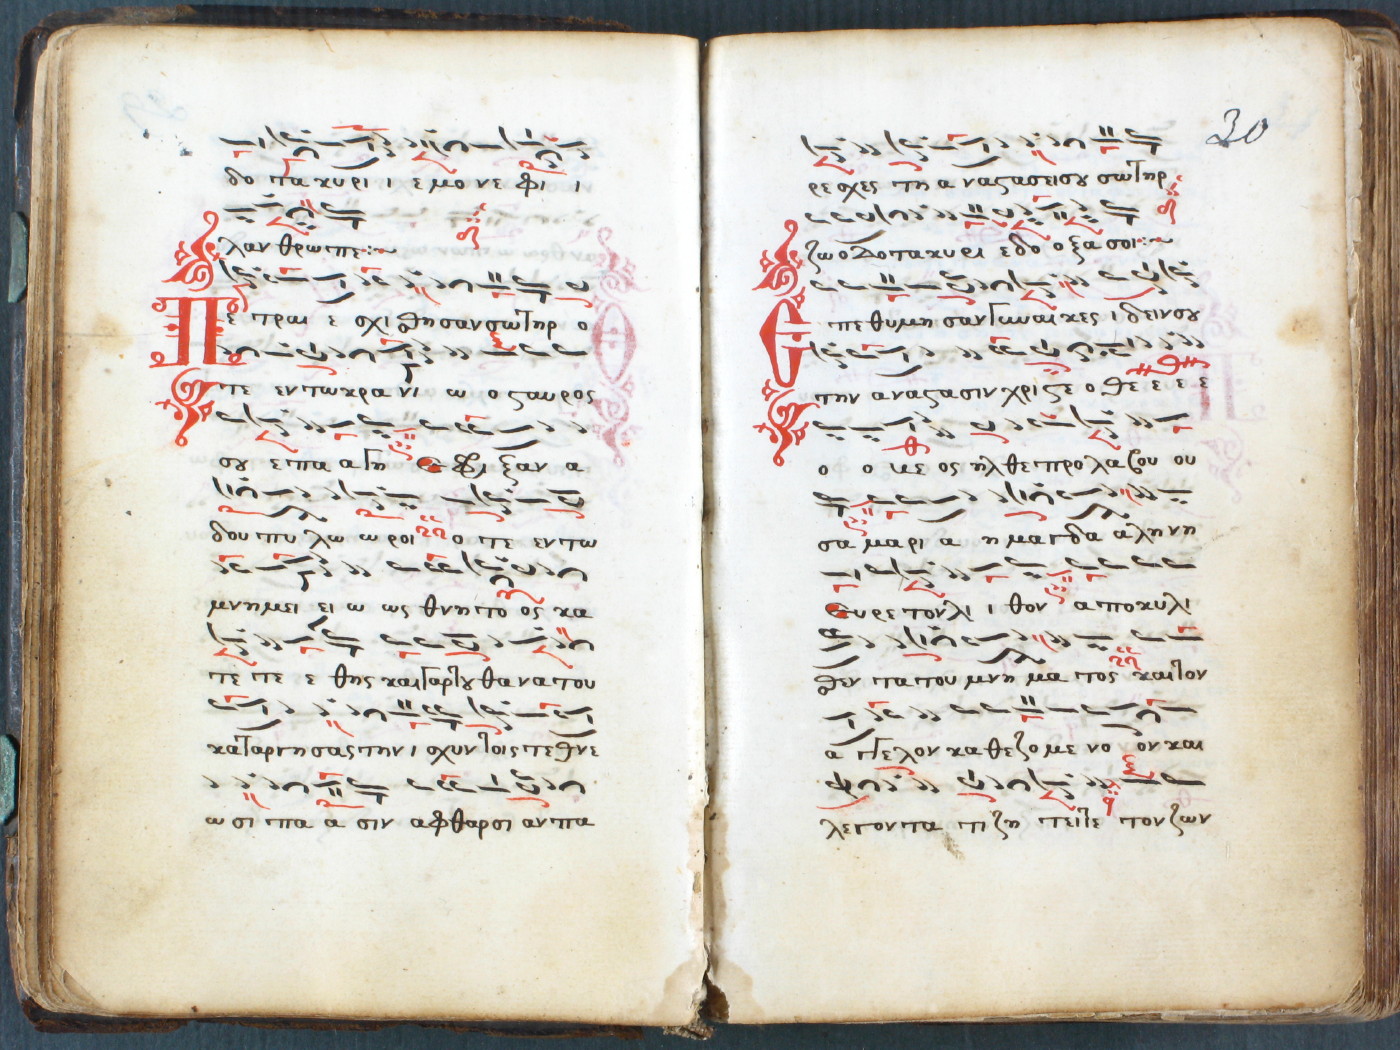 δο τα κυρι ι ε μο νε φι ι
λαν θρω πε:~
Πε τραι ε σχι θησαν σωτηρ ο
τε εν τω κρα νι ω ο ςαυρος
σου ε πα α γη ε φρι ξαν α
δου πυ λω ω ροι ο τε εν τω
μνημει ει ω ως θνητο ος κα
τε τε ε θης και γαρ του θανατου
καταργησας την ι σχυν τοις τεθνε
ω σι πα α σιν αφθαρσι αν πα
30
ρεσχες τη α ναςασει σου σωτηρ
ζωοδοτα κυρι ε δο ο ξα σοι:~
Επεθυμησαν γυναικες ιδειν σου
την αναςασιν χριςε ο θε ε ε ε
ο ο με ος ηλθε προλαβου ου
σα μαρι α η μαγδα α ληνη
ευρε τον λι ι θον α ποκυλι
σθεν τα του μνη μα τος και τον
α γγελον καθεζομενο ον και
λεγοντα τι ζη τειτε τον ζων